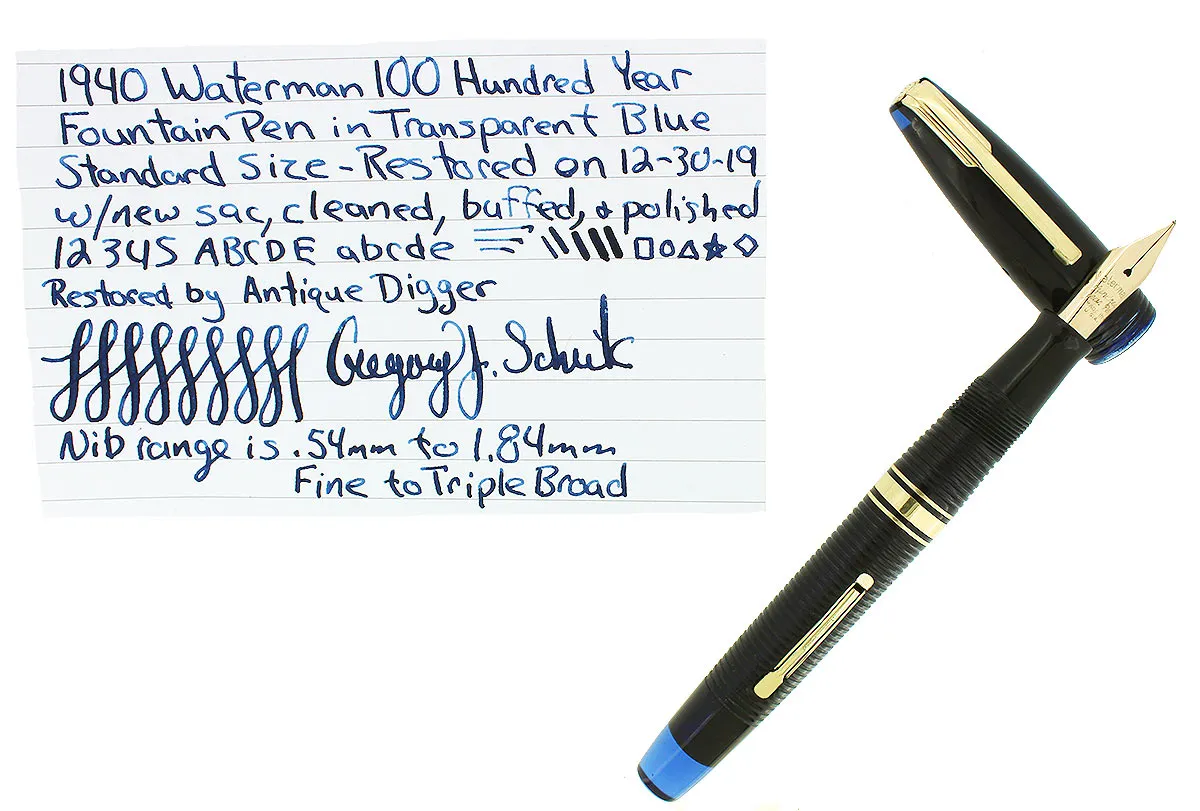 1940 Waterman 100 Hundred Year
Fountain Pen in Transparent Blue
Standard Size - Restored on 12-30-19
w/new sac, cleaned, buffed, & polished
12345 ABCDE abcde
Restored by Antique Digger
Gregory J.
Nib range is .54mm to 1.84mm
Fine to Triple Broad